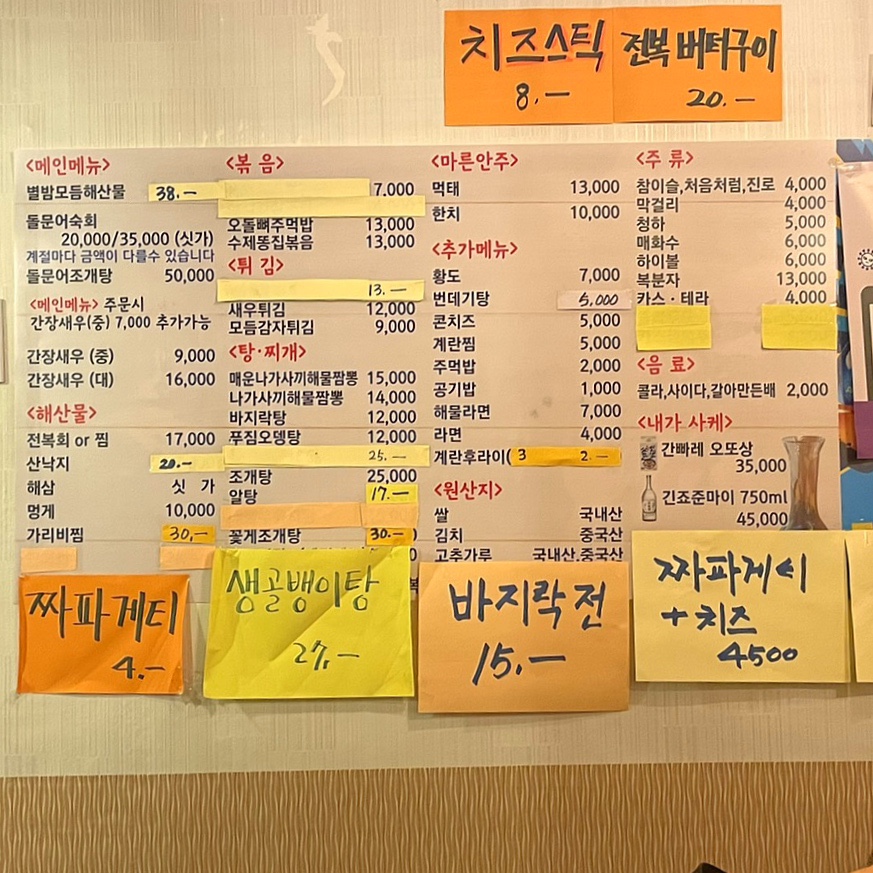 치즈스틱
8.—
전복 버터구이
20.—
<메인메뉴>
별밤모듬해산물 38.—
돌문어숙회
20,000/35,000 (싯가)
계절마다 금액이 다를수 있습니다
돌문어조개탕 50,000
<메인메뉴> 주문시
간장새우(중) 7,000 추가가능
간장새우 (중) 9,000
간장새우 (대) 16,000
<해산물>
전복회 or 찜 17,000
산낙지 20.—
해삼 싯 가
멍게 10,000
가리비찜 30,—
<볶 음>
7,000
오돌뼈주먹밥 13,000
수제똥집볶음 13,000
<튀 김>
13.—
새우튀김 12,000
모듬감자튀김 9,000
<탕·찌개>
매운나가사끼해물짬뽕 15,000
나가사끼해물짬뽕 14,000
바지락탕 12,000
푸짐오뎅탕 12,000
25.—
조개탕 25,000
알탕 17.—
꽃게조개탕 30.—
<마른안주>
먹태 13,000
한치 10,000
<추가메뉴>
황도 7,000
번데기탕 5,000
콘치즈 5,000
계란찜 5,000
주먹밥 2,000
공기밥 1,000
해물라면 7,000
라면 4,000
계란후라이( 3 2.—
<원산지>
쌀 국내산
김치 중국산
고추가루 국내산,중국산
<주 류>
참이슬,처음처럼,진로 4,000
막걸리 4,000
청하 5,000
매화수 6,000
하이볼 6,000
복분자 13,000
카스·테라 4,000
<음 료>
콜라,사이다,갈아만든배 2,000
<내가 사케>
간빠레 오또상
35,000
긴죠준마이 750ml
45,000
짜파게티
4.—
생골뱅이탕
27,—
바지락전
15.—
짜파게티
+ 치즈
4500